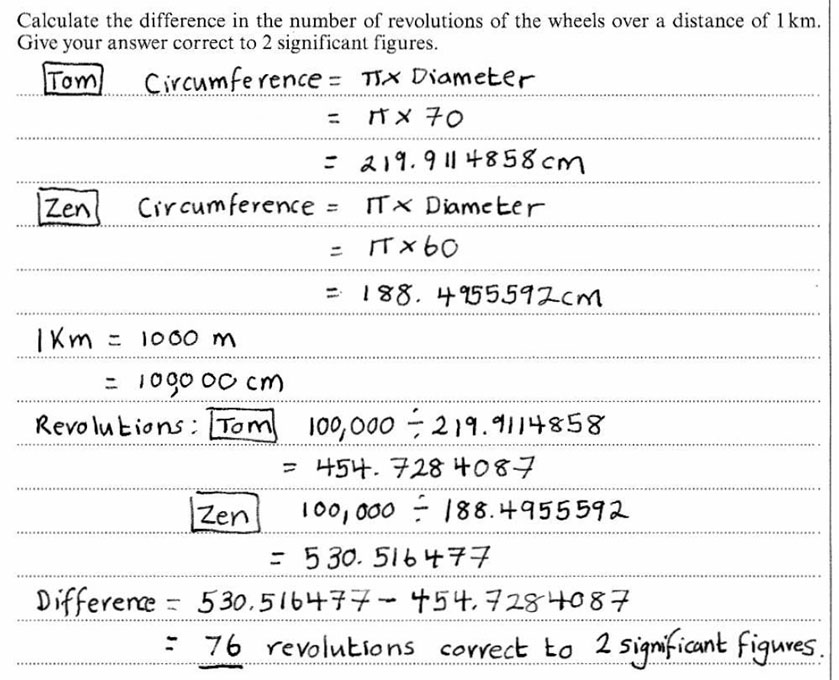 Calculate the difference in the number of revolutions of the wheels over a distance of 1 km.
Give your answer correct to 2 significant figures.
Tom Circumference = π× Diameter
= π × 70
= 219.9114858cm
Zen Circumference = π× Diameter
= π × 60
= 188.4955592cm
1Km = 1000 m
= 100000 cm
Revolutions: Tom 100,000 ÷ 219.9114858
= 454.7284087
Zen 100,000 ÷ 188.4955592
= 530.516477
Difference = 530.516477 - 454.7284087
= 76 revolutions correct to 2 significant figures.